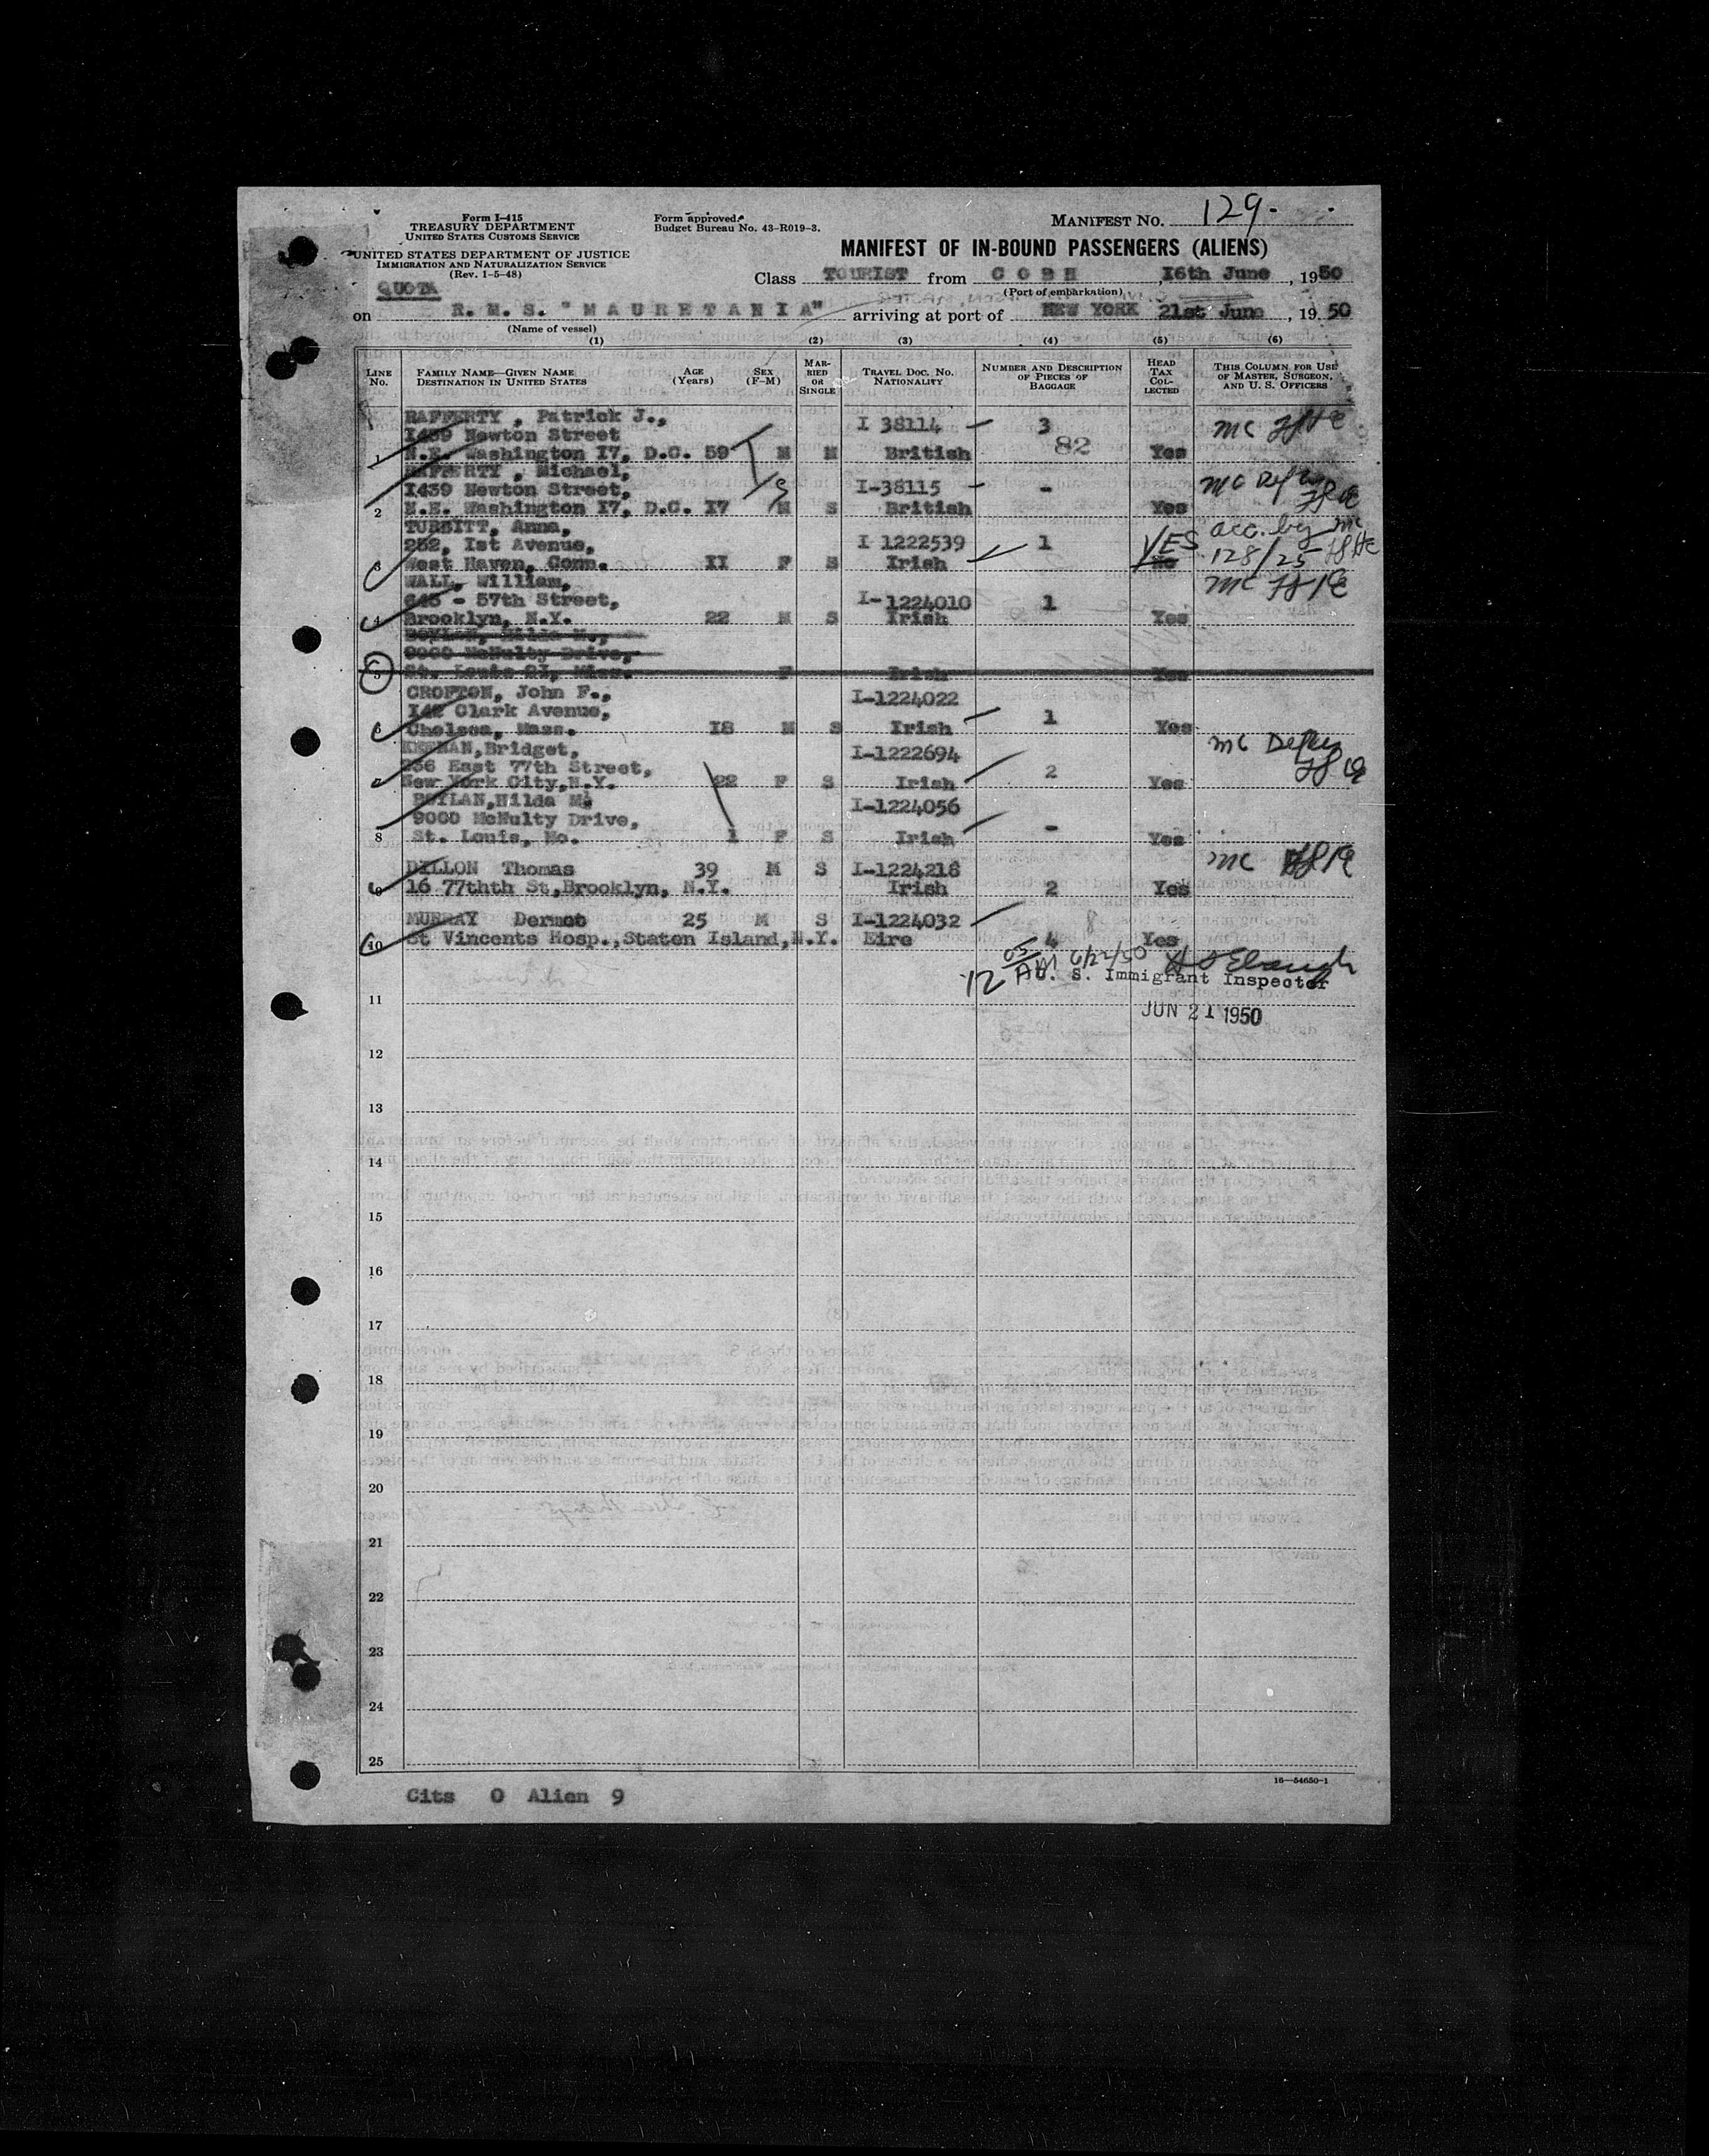 Form I-415
TREASURY DEPARTMENT
UNITED STATES CUSTOMS SERVICE
UNITED STATES DEPARTMENT OF JUSTICE
IMMIGRATION AND NATURALIZATION SERVICE
(Rev. 1-5-48)
QUOTA
Form approved.
Budget Bureau No. 43-R019-3.
MANIFEST NO. 129-
MANIFEST OF IN-BOUND PASSENGERS (ALIENS)
Class TOURIST from COBH, 16th June, 1950
(Port of embarkation)
on R. M. S. "MAURETANIA" arriving at port of NEW YORK 21st June, 19 50
(Name of vessel)
(1) (2) (3) (4) (5) (6)
LINE NO. FAMILY NAME—GIVEN NAME DESTINATION IN UNITED STATES AGE (Years) SEX (F-M) MARRIED OR SINGLE TRAVEL DOC. NO. NATIONALITY NUMBER AND DESCRIPTION OF PIECES OF BAGGAGE HEAD TAX COLLECTED THIS COLUMN FOR USE OF MASTER, SURGEON, AND U. S. OFFICERS
RAFFERTY , Patrick J., I 38114 3 mc
1439 Newton Street 82
1 N.E. Washington 17, D.C. 59 M M British Yes
RAFFERTY , Michael,
1439 Newton Street, I-38115 - mc
2 N.E. Washington 17, D.C. 17 M S British Yes
TUBBITT, Anna, acc. by mc
252, Ist Avenue, I 1222539 1 YES 128/25
3 West Haven, Conn. II F S Irish
WALL, William, mc
645 - 57th Street, I-1224010 1
4 Brooklyn, N.Y. 22 M S Irish Yes
BOYLAN, Hilda M.,
9000 McNulty Drive,
5 St. Louis 21, Miss. F Irish Yes
CROFTON, John F., I-1224022
142 Clark Avenue, 1
6 Chelsea, Mass. 18 M S Irish Yes
KEENAN, Bridget, I-1222694 mc
236 East 77th Street, 2
7 New York City, N.Y. 22 F S Irish Yes
BOYLAN, Hilda M. I-1224056
9000 McNulty Drive, -
8 St. Louis, Mo. 1 F S Irish Yes
DILLON Thomas 39 M S I-1224218 mc
9 16 77thth St, Brooklyn, N.Y. Irish 2 Yes
MURRAY Dermot 25 M S I-1224032
10 St Vincents Hosp., Staten Island, N.Y. Eire 4 Yes
12 50 AM
U. S. Immigrant Inspector
11 JUN 21 1950
12
13
14
15
16
17
18
19
20
21
22
23
24
25
16—54650-1
Cits 0 Alien 9